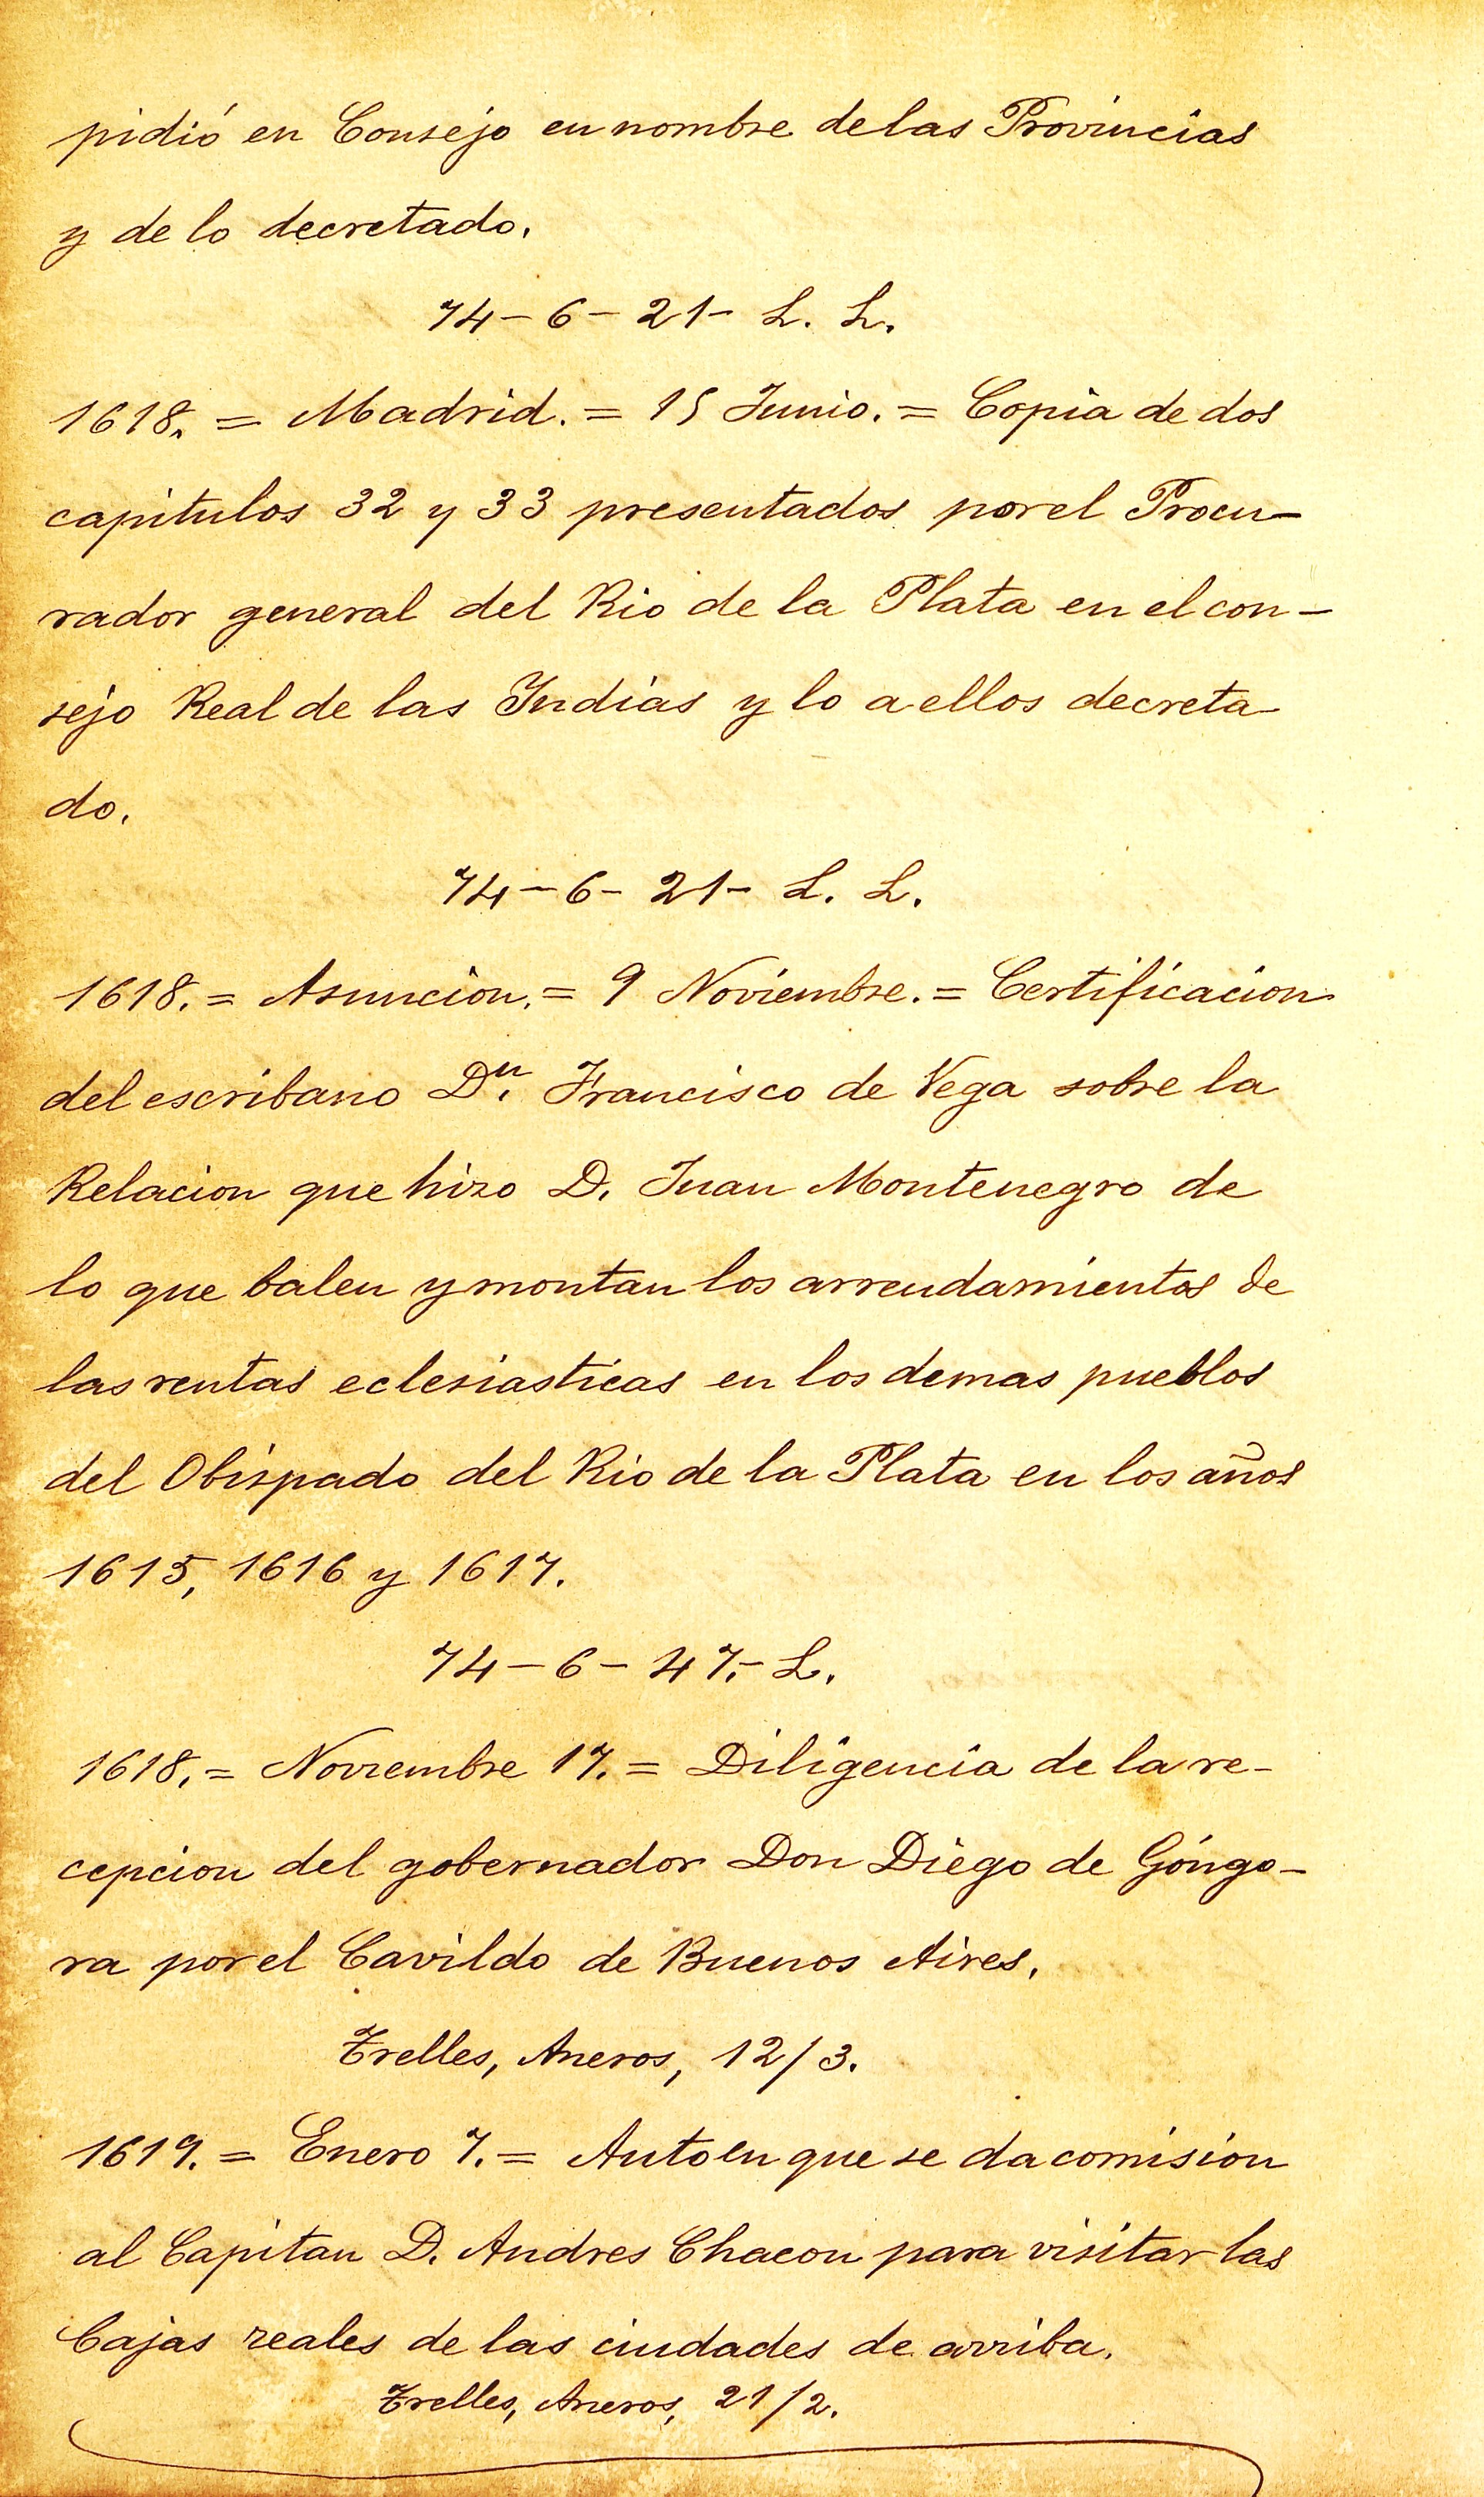 pidió en Consejo en nombre de las Provincias
y de lo decretado.
74-6-21- L. L.
1618. = Madrid. = 15 Junio. = Copia de dos
capitulos 32 y 33 presentados por el Procu-
rador general del Rio de la Plata en el con-
sejo Real de las Indias y lo a ellos decreta-
do.
74-6-21- L. L.
1618. = Asuncion. = 9 Noviembre. = Certificacion
del escribano Dn. Francisco de Vega sobre la
Relacion que hizo D. Juan Montenegro de
lo que balen y montan los arrendamientos de
las rentas eclesiasticas en los demas pueblos
del Obispado del Rio de la Plata en los años
1615, 1616 y 1617.
74-6-47.- L.
1618. = Noviembre 17. = Diligencia de la re-
cepcion del gobernador Don Diego de Góngo-
ra por el Cavildo de Buenos Aires.
Trelles, Aneros, 12/3.
1619. = Enero 7. = Auto en que se da comision
al Capitan D. Andres Chacon para visitar las
Cajas reales de las ciudades de arriba.
Trelles, Aneros, 21/2.